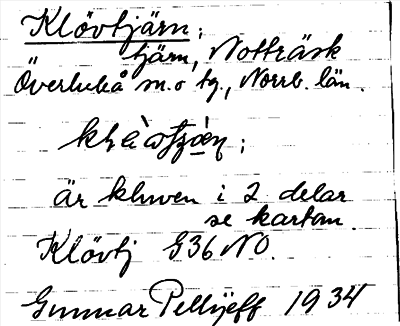 Klövtjärn;
tjärn, Notträsk
Överluleå sn. o tg., Norrb. län.
är kluven i 2 delar
se kartan.
Klövtj G36 NO.
Gunnar Pellijeff 1934